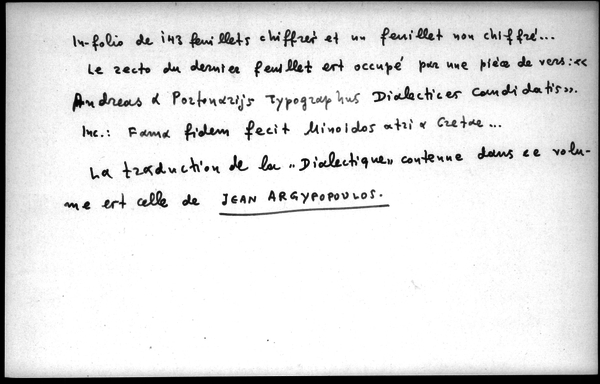 In-folio de 143 feuillets chiffrés et un feuillet non chiffré...
Le recto du dernier feuillet est occupé par une pièce de vers: «
Andreas a Portonarijs Typographus Dialectices candidatis».
Inc.: Fama fidem fecit Minoidos atria Cretae...
La traduction de la „Dialectique„ contenue dans ce volu-
me est celle de JEAN ARGYPOPOULOS.